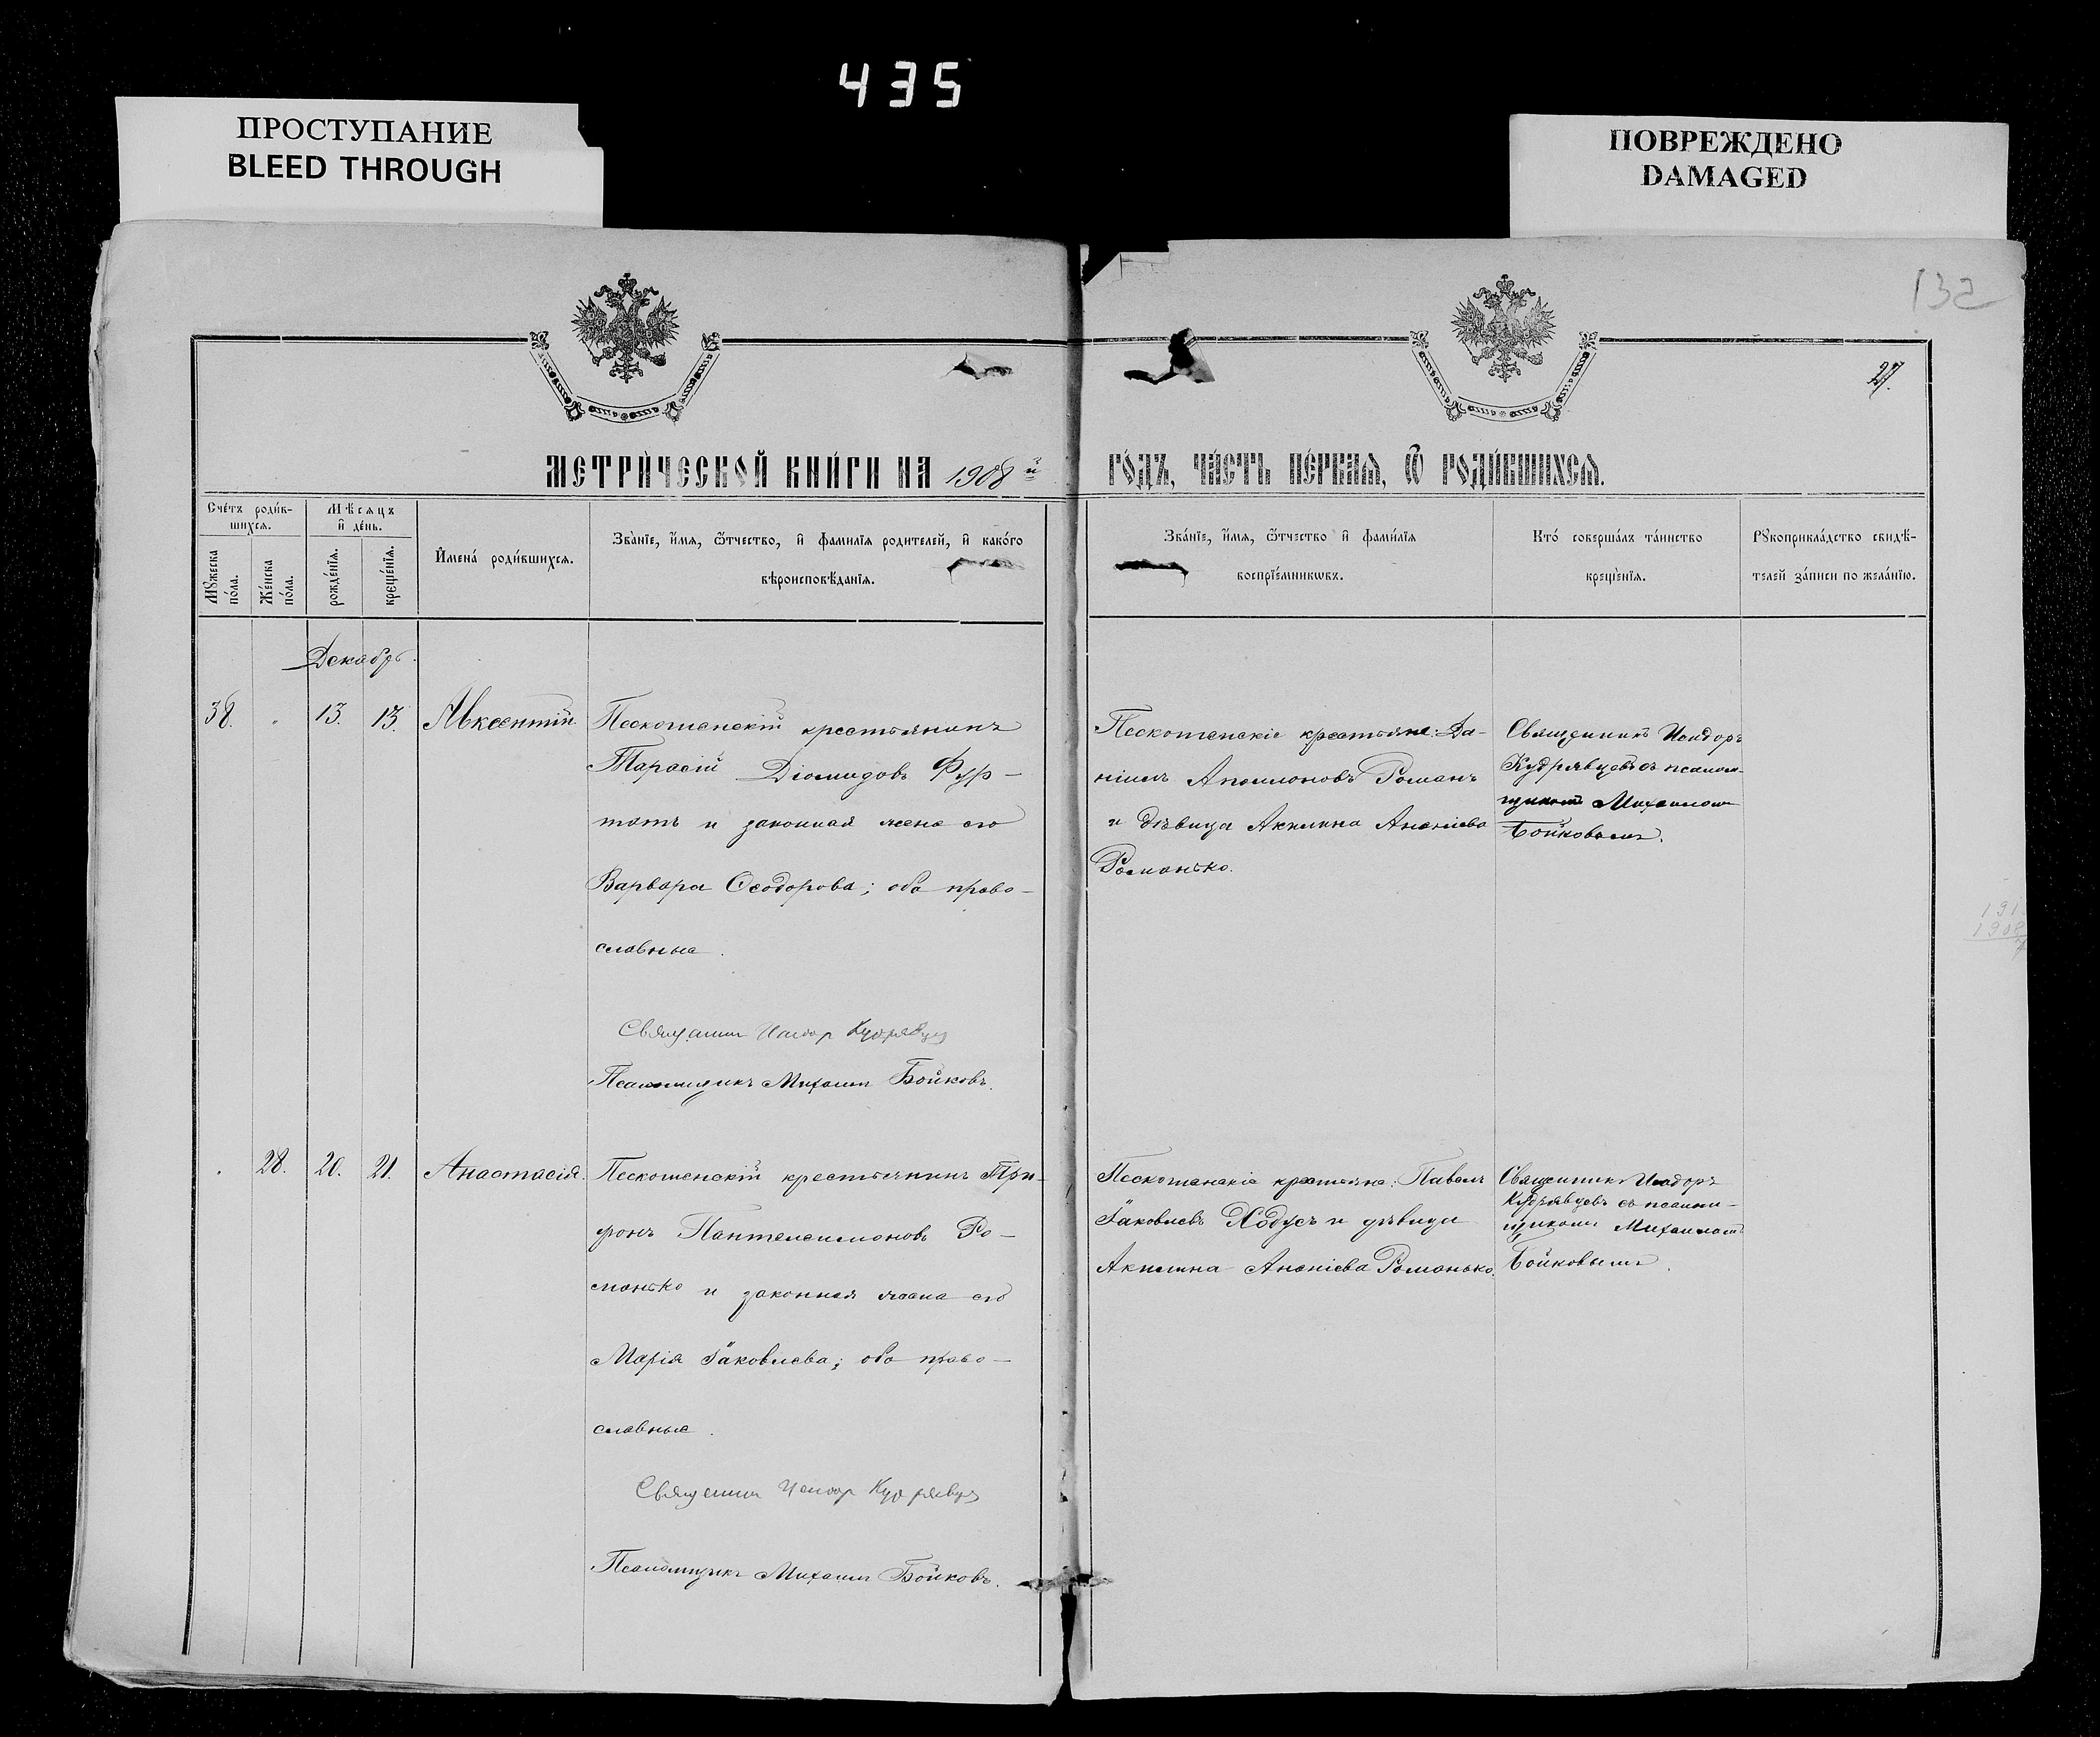 435
ПРОСТУПАНИЕ
BLEED THROUGH
ПОВРЕЖДЕНО
DAMAGED
132
27.
МЕТРИ́ЧЕСКОЙ КНИ́ГИ НА 1908 й
ГО́ДЪ, ЧА́СТЬ ПЕ́РВАЯ, Ѿ РОДИ́ВШИХСЯ.
Сче́тъ роди́в-
шихся.
Мѣ́сяцъ
и҆ де́нь.
Мꙋжеска
по́ла.
Же́нска
по́ла.
рожде́нїя.
креще́нїя.
И҆мена́ роди́вшихся.
Зва́нїе, и҆́мя, ѻ҆́тчество, и҆ фами́лїя роди́телей, и҆ како́го
вѣроисповѣ́данїя.
Зва́нїе, и҆́мя, ѻ҆́тчество и҆ фами́лїя
воспрїе́мникѡвъ.
Кто́ соверша́лъ та́инство
креще́нїя.
Рꙋкоприкла́дство свидѣ́-
телей за́писи по жела́нїю.
Декабрь.
38.
13.
13.
Авксентій.
Пескошенскій крестьянинъ
Тарасій Діомидовъ Фур-
татъ и законная жена его
Варвара Ѳеодорова; оба право-
славные.
Священник Исидор Кудрявцев
Псаломщикъ Михаилъ Бойковъ.
Пескошенскіе крестьяне: Да-
ніилъ Аполлоновъ Романъ
и дѣвица Акилина Ананіева
Романько.
Священникъ Исидоръ
Кудрявцевъ съ псалом-
щикомъ Михаиломъ
Бойковымъ.
28.
20.
21.
Анастасія.
Пескошенскій крестьянинъ Три-
фонъ Пантелеимоновъ Ро-
манько и законная жена его
Марія Іаковлева; оба право-
славные.
Священник Исидор Кудрявцев
Псаломщикъ Михаилъ Бойковъ.
Пескошенскіе крестьяне: Павелъ
Іаковлевъ Ходусъ и дѣвица
Акилина Ананіева Романько.
Священникъ Исидоръ
Кудрявцевъ съ псалом-
щикомъ Михаиломъ
Бойковымъ.
191
1908